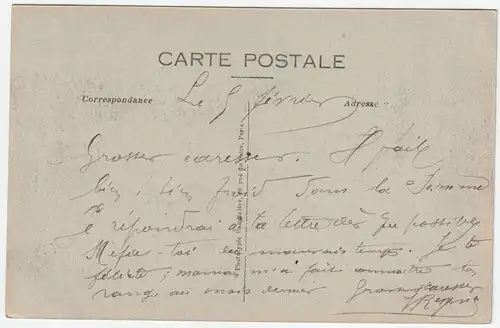 CARTE POSTALE
Correspondance
Adresse
Le 5 février
Grosses caresses. Il fait
bien, bien froid dans la Somme
Je répondrai à ta lettre dès que possible
Méfie-toi du mauvais temps. Je te
félicite; maman m'a fait connaître ton
rang au mois dernier Grosses caresses